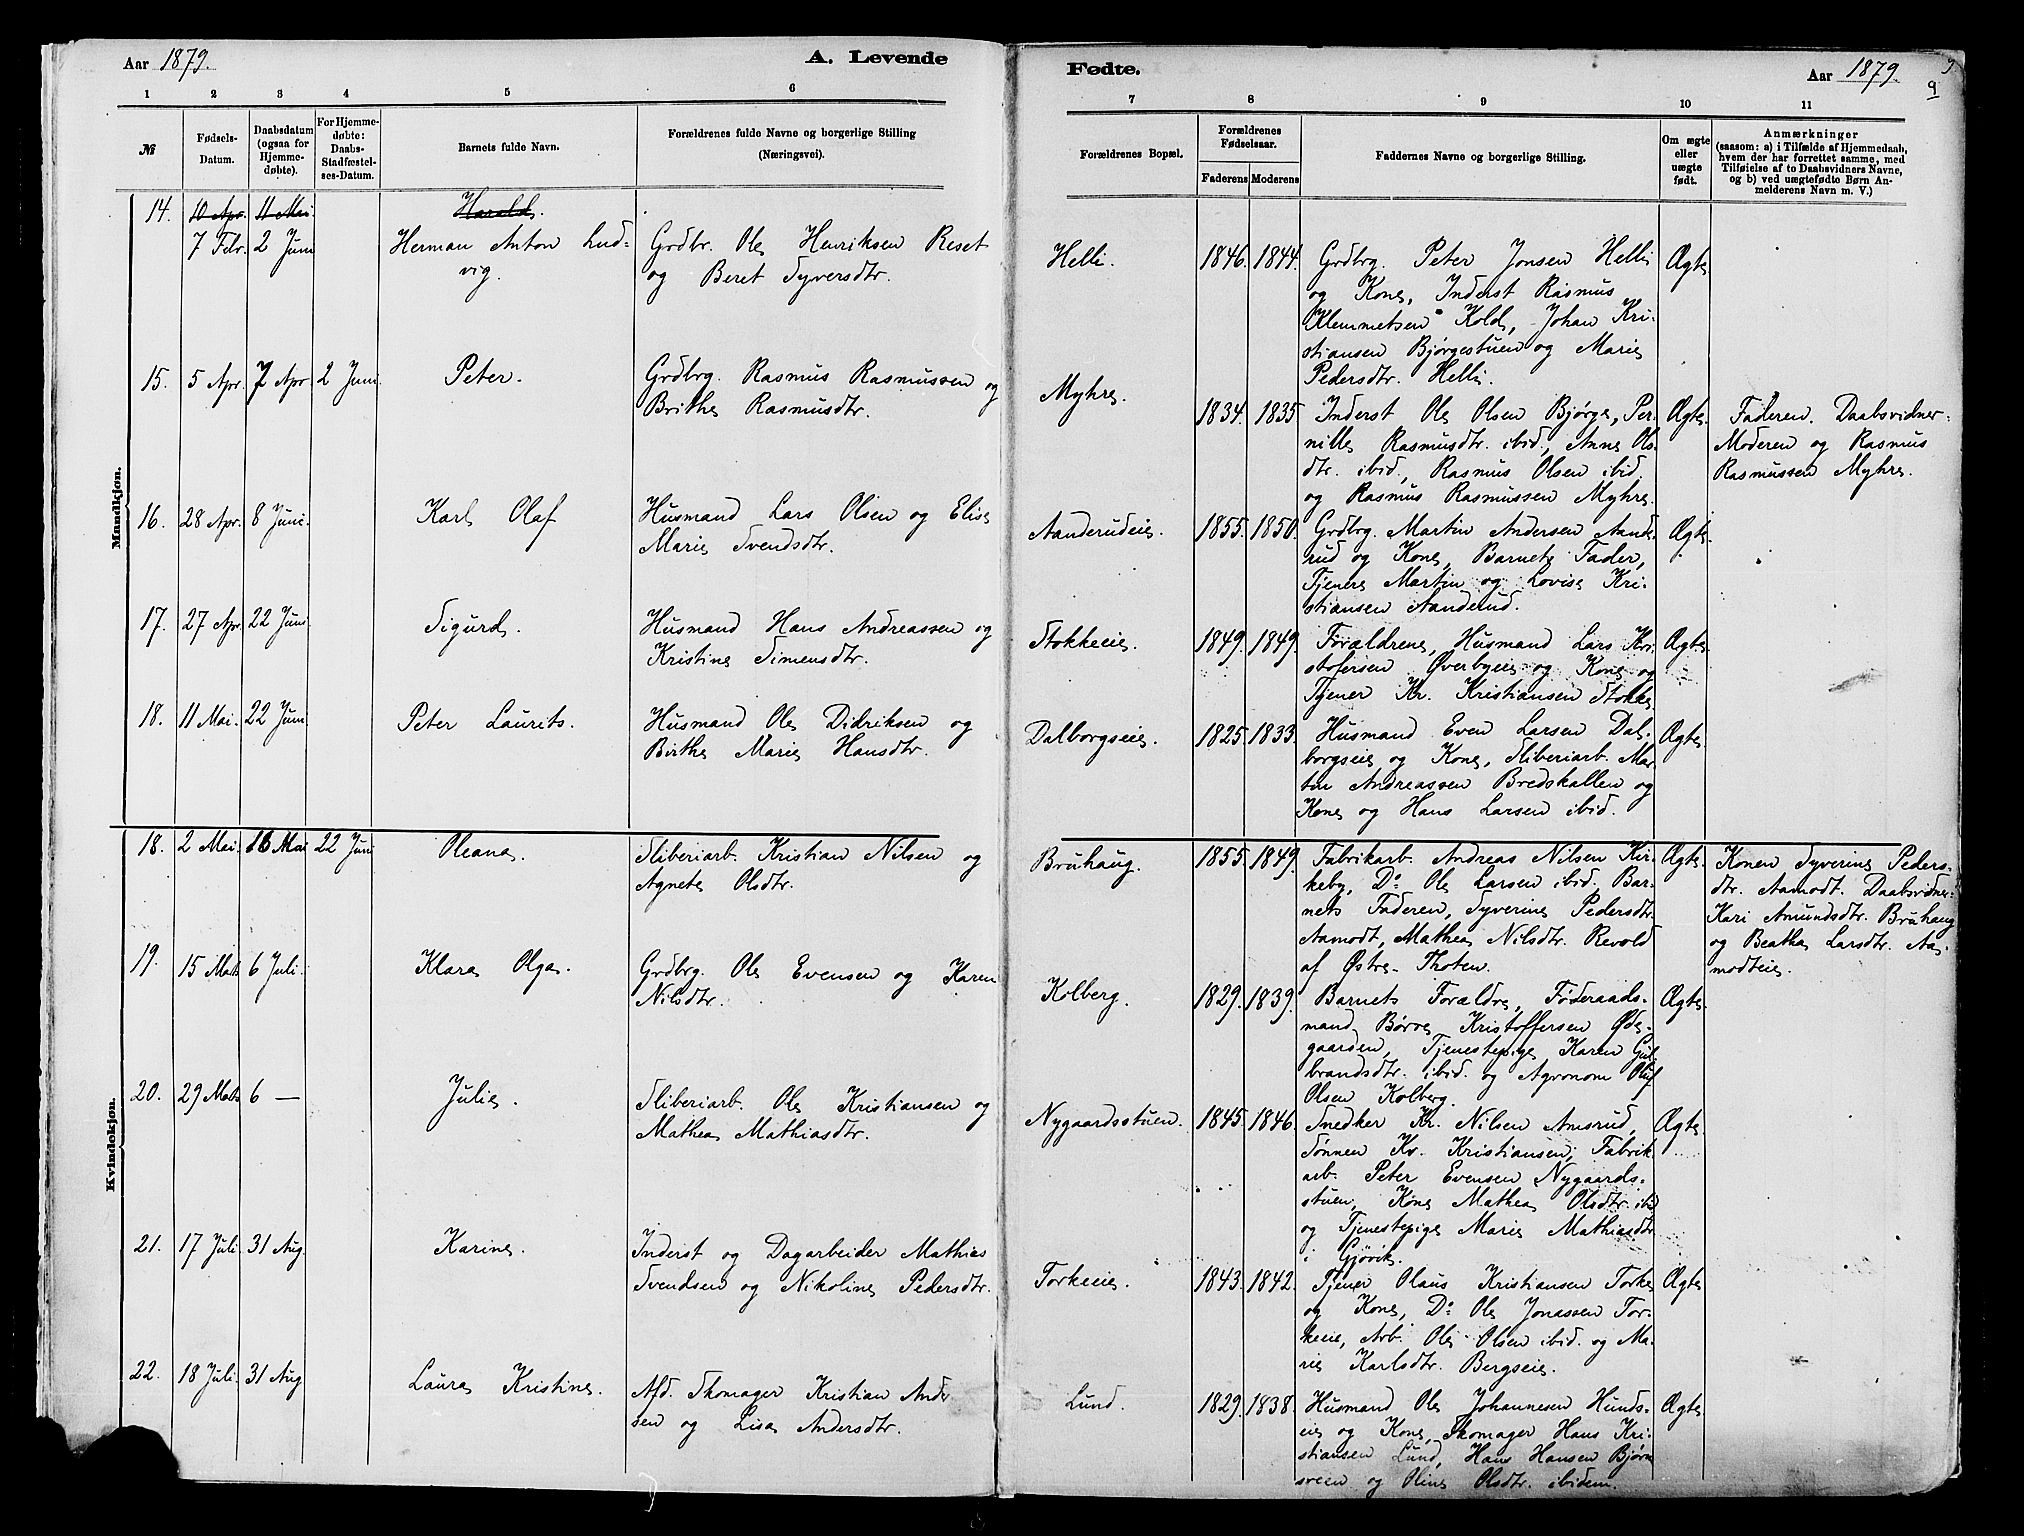 Aar 1879.
A. Levende
Fødte.
Aar 1879.
9
1 2 3 4 5 6 7 8 9 10 11
№
Fødsels-
Datum.
Daabsdatum
(ogsaa for
Hjemme-
døbte).
For Hjemme-
døbte:
Daabs-
Stadfæstel-
ses-Datum.
Barnets fulde Navn.
Forældrenes fulde Navne og borgerlige Stilling
(Næringsvei).
Forældrenes Bopæl.
Forældrenes
Fødselsaar.
Faderens Moderens
Faddernes Navne og borgerlige Stilling.
Om ægte
eller
uægte
født.
Anmærkninger
(saasom: a) i Tilfælde af Hjemmedaab,
hvem der har forrettet samme, med
Tilføielse af to Daabsvidners Navne,
og b) ved uægtefødte Børn An-
melderens Navn m. V.)
Mandkjøn.
14. 10 Apr. 11 Mai Harald.
7 Febr. 2 Juni Herman Anton Lud-
vig.
Grdbr. Ole Henriksen Reset
og Beret Syversdtr.
Helli. 1846. 1844. Grdbrg. Peter Jonsen Helli Ægte
og Kone, Inderst Rasmus
Klemmetsen Kold, Johan Kri-
stiansen Bjørgestuen og Marie
Pedersdtr. Helli.
15. 5 Apr. 7 Apr. 2 Juni. Peter. Grdbrg. Rasmus Rasmussen og
Brithe Rasmusdtr.
Myhre. 1834. 1835 Inderst Ole Olsen Bjørge, Per- Ægte. Faderen. Daabsvidner-
nille Rasmusdtr. ibid., Anne Ols- Moderen og Rasmus
dtr. ibid., Rasmus Olsen ibid. Rasmussen Myhre.
og Rasmus Rasmussen Myhre.
16. 28 Apr. 8 Juni. Karl Olaf Husmand Lars Olsen og Elise
Marie Svendsdtr.
Aanderudeie. 1855. 1850. Grdbrg. Martin Andersen Aande- Ægte.
rud og Kone, Barnets Fader,
Tjenere Martin og Lovise Kri-
stiansen Aanderud.
17. 27 Apr. 22 Juni Sigurd. Husmand Hans Andreassen og
Kristine Simensdtr.
Stokkeeie. 1849. 1849. Forældrene, Husmand Lars Kri- Ægte.
stofersen Øverbyeie og Kone og
Tjener Kr. Kristiansen Stokke.
18. 11 Mai. 22 Juni Peter Laurits. Husmand Ole Didriksen og
Birthe Marie Hansdtr.
Dalborgseie. 1825. 1833. Husmand Even Larsen Dal- Ægte.
borgseie og Kone, Sliberiarb. Mar-
tin Andreassen Bredskallen og
Kone og Hans Larsen ibid.
Kvindekjøn.
18. 2 Mai. 16 Mai 22 Juni Oleana. Sliberiarb. Kristian Nilsen og
Agnete Olsdtr.
Bruhaug. 1855. 1849. Fabrikarb. Andreas Nilsen Kir- Ægte. Konen Syverine Peders-
keby, Do Ole Larsen ibid. Bar- dtr. Aamodt. Daabsvidner-
nets Faderen, Syverine Pedersdtr. Kari Amundsdtr. Bruhaug
Aamodt, Mathea Nilsdtr. Revold og Beathe Larsdtr. Aa-
af Østre-Thoten. modteie.
19. 15 Mai 6 Juli. Klara Olga. Grdbrg. Ole Evensen og Karen
Nilsdtr.
Kolberg. 1829. 1839. Barnets Forældre, Føderaads- Ægte.
mand Børre Kristoffersen Øde-
gaarden, Tjenestepige Karen Gul-
brandsdtr. ibid. og Agronom Oluf
Olsen Kolberg.
20. 29 Mai 6 — Julie. Sliberiarb. Ole Kristiansen og
Mathea Mathiasdtr.
Nygaardsstuen. 1845. 1846. Snedker Kr. Nilsen Amsrud, Ægte
Sønnen Kr. Kristiansen, Fabrik-
arb. Peter Evensen Nygaards-
stuen, Kone Mathea Olsdtr. ibid
og Tjenestepige Marie Mathiasdtr.
i Gjøvik.
21. 17 Juli. 31 Aug. Karine. Inderst og Dagarbeider Mathias
Svendsen og Nikoline Pedersdtr.
Torkeeie. 1843. 1842. Tjener Olaus Kristiansen Torke Ægte
og Kone, Do Ole Jonassen Tor-
keeie, Arb. Ole Olsen ibid. og Ma-
rie Karlsdtr. Bergseie.
22. 18 Juli. 31 Aug Laura Kristine. Afd. Skomager Kristian Ander-
sen og Lisa Andersdtr.
Lund. 1829. 1838. Husmand Ole Johannesen Hunds- Ægte
eie og Kone, Skomager Hans Kri-
stiansen Lund, Hans Hansen Bjørn
sveen og Oline Olsdtr. ibidem.